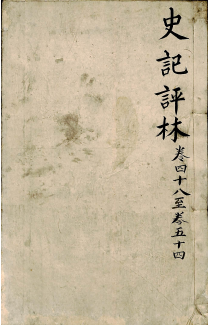 史記評林
卷四十八至卷五十四